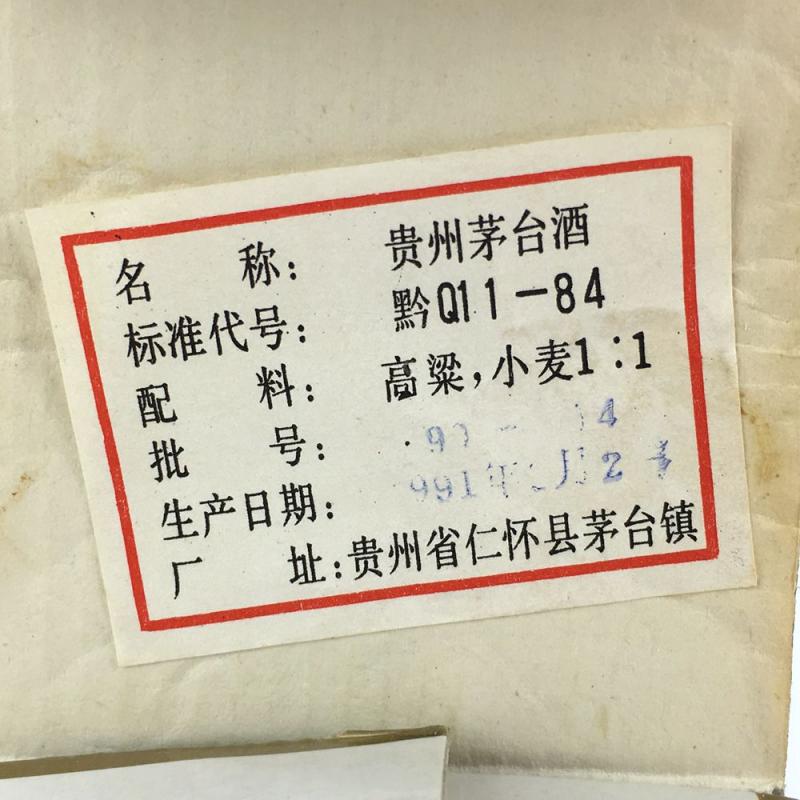 名 称: 贵州茅台酒
标准代号: 黔Q11-84
配 料: 高粱,小麦1:1
批 号:
生产日期: 991年 月2
厂 址:贵州省仁怀县茅台镇